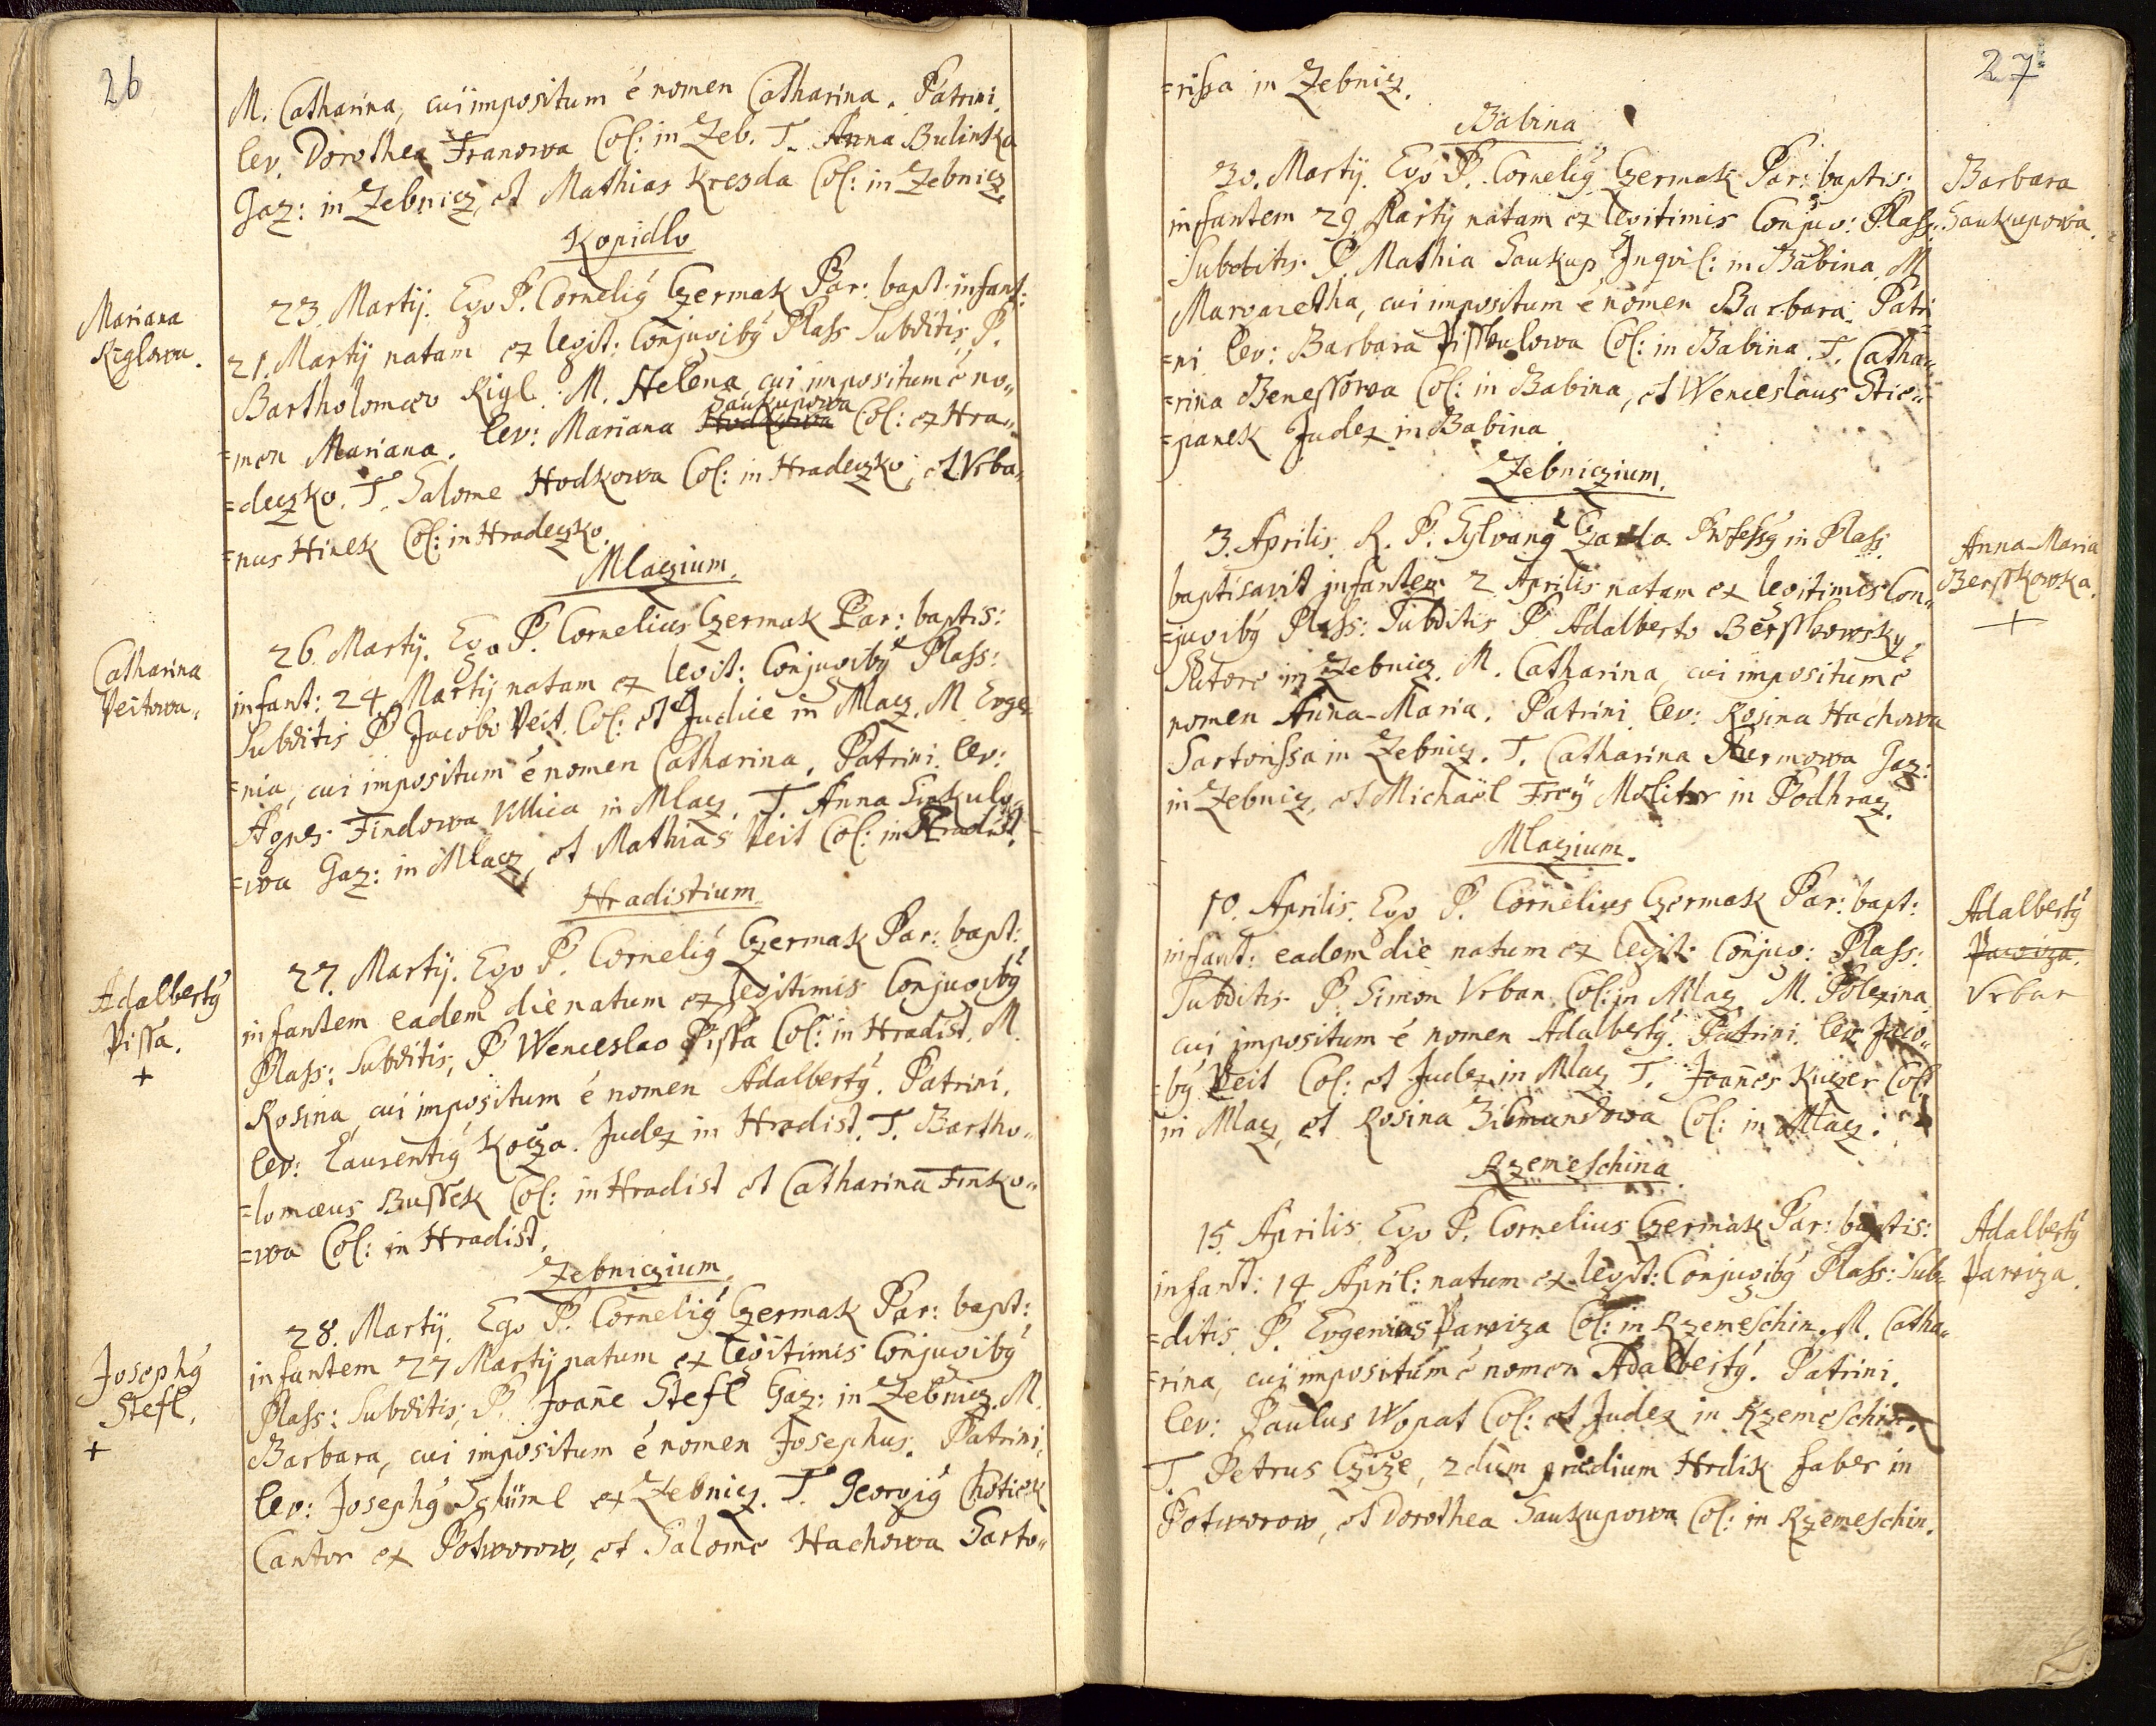 26
M. Catharina, cui impositum é nomen Catharina. Patrini.
lev. Dorothea Franowa Col: in Zeb. T. Anna Bulinska
Gaz: in Zebnicz, et Mathias Kresda Col: in Zebnicz.
Kopidlo
Mariana
Riglowa.
23. Martij. Ego P. Cornelig Czermak Par: bapt: infant:
21. Martij natam ex legit: Conjugibg Plass Subditis, P.
Bartholomaeo Rigl. M. Helena, cui impositum é no„
=men Mariana. lev: Mariana Saukupowa Col: ex Hra„
=deczko. T. Salome Hodkowa Col: in Hradeczko, et Vrba„
=nus Hinek Col: in Hradeczko.
Mlaczium.
Catharina
Veitowa.
26. Martij. Ego P. Cornelius Czermak Par: baptis:
infant: 24. Martij natam ex legit: Conjugibg Plass:
Subditis P Jacobo Veit. Col: et Judice in Mlacz. M. Euge„
=nia, cui impositum é nomen Catharina. Patrini. lev:
Agnes Findowa Villica in Mlacz. T. Anna Sinkulo„
=wa Gaz: in Mlacz, et Mathias Veit Col: in Hradist.
Hradistium.
Adalbertg
Pissa.
+
27. Martij. Ego P. Cornelig Czermak Par: bapt:
infantem eadem die natum ex legitimis Conjugibg
Plass: Subditis, P Wenceslao Pissa Col: in Hradist. M.
Rosina, cui impositum é nomen Adalbertg. Patrini.
lev: Laurentig Kocza. Judex in Hradist. T. Bartho„
=lomaeus Bussek Col: in Hradist et Catharina Finko„
=wa Col: in Hradist.
Zebniczium.
Josephg
Stefl.
+
28. Martij. Ego P. Cornelig Czermak Par: bapt:
infantem 27 Martij natum ex legitimis Conjugibg
Plass: Subditis, P. Joan̄e Stefl Gaz: in Zebnicz. M.
Barbara, cui impositum é nomen Josephus. Patrini.
lev: Josephg Schiml ex Zebnicz. T. Georgig Chotiek
Cantor ex Potworow, et Salome Hachowa Sarto„
27
=rissa in Zebnicz.
Babina
Barbara
Saukupowa.
30. Martij. Ego P. Cornelig Czermak Par: baptis:
infantem 29. Martij natam ex legitimis Conjug: Plass:
Subditis. P. Mathia Saukup Inquil: in Babina. M
Margaretha, cui impositum é nomen Barbara. Patri„
=ni lev: Barbara Col: in Babina. T. Catha„
=rina Benessowa Col: in Babina, et Wenceslaus Stie„
=panek Judex in Babina.
Zebniczium.
Anna-Maria
Berskowska.
+
3. Aprilis. R. P. Sylvang Professg in Plass
baptisavit infantem 2 Aprilis natam ex legitimis Con„
=jugibg Plass: Subditis P Adalberto Berskowsky
Sutore in Zebnicz. M. Catharina, cui impositum é
nomen Anna-Maria. Patrini lev: Rosina Hachowa
Sartorissa in Zebnicz. T. Catharina Gaz:
in Zebnicz, et Michaël Frey Molitor in Podhracz.
Mlaczium.
Adalbertg
Parviza.
Vrban
10. Aprilis. Ego P. Cornelius Czermak Par: bapt:
infant: eadem die natum ex legit: Conjug: Plass:
Subditis P. Simon Vrban Col: in Mlacz M. Polexina
cui impositum é nomen Adalbertg. Patrini. lev: Jaco„
=bg Veit Col: et Judex in Mlacz. T. Joan̄es Kuczer Col:
in Mlacz, et Rosina Zibmundowa Col: in Mlacz.
Rzemeschina
Adalbertg
Parviza.
15 Aprilis Ego P. Cornelius Czermak Par: baptis:
infant: 14 April: natum ex legit: Conjugibg Plass: Sub„
=ditis P. Eugenius Parviza Col: in Rzemeschin. M. Catha„
=rina, cui impositum é nomen Adalbertg. Patrini.
lev: Paulus Wopat Col: et Judex in Rzemeschin.
T. Petrus Czize, 2dum praedium Hrdik faber in
Potworow, et Dorothea Saukupowa Col: in Rzemeschin.